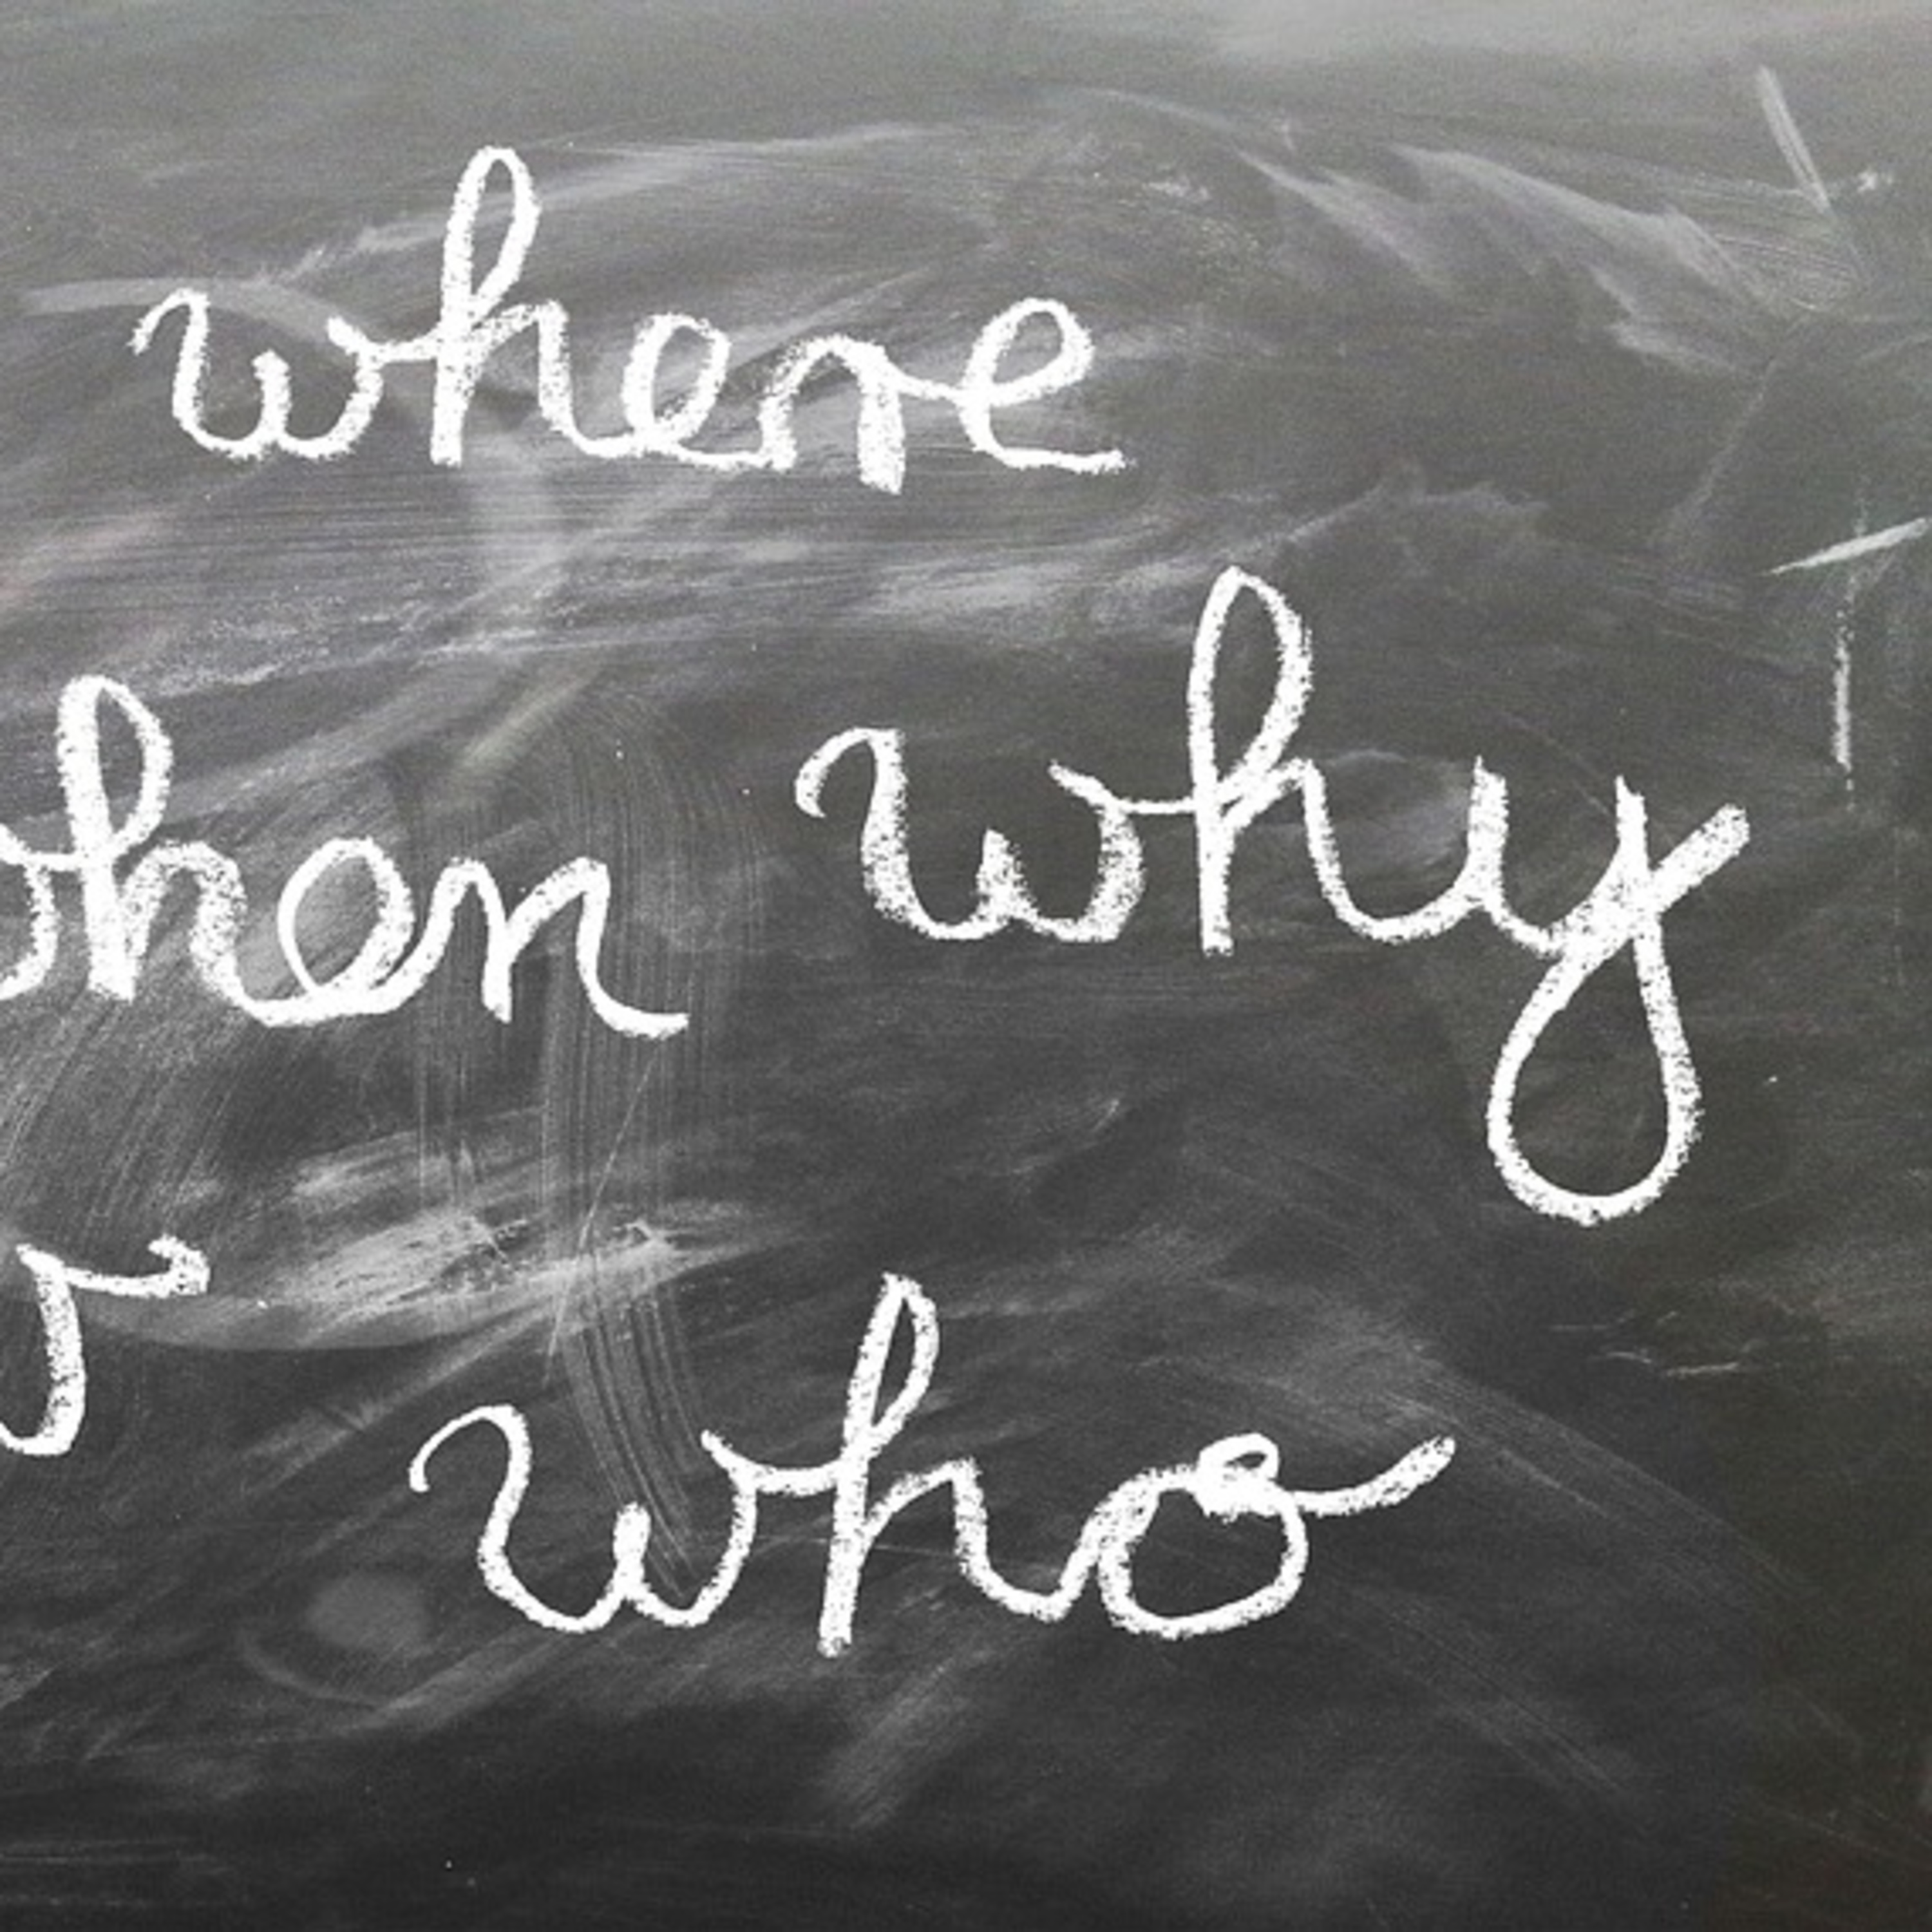 where
hen why
who